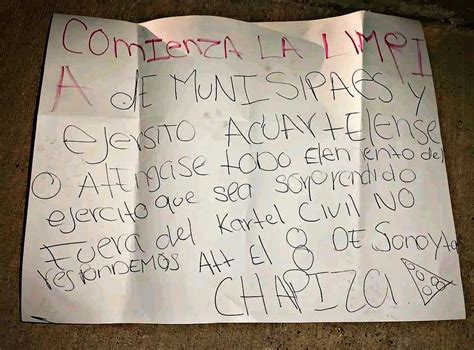 COMIENZA LA LIMPI
A DE MUNISIPAES Y
EJERSITO ACUARTELENSE
O ATENGASE TODO Elemento del
ejercito que sea sorprendido
Fuera del Kartel Civil NO
RESPONDEMOS Att El 8 DE Sonoyta
CHAPIZA